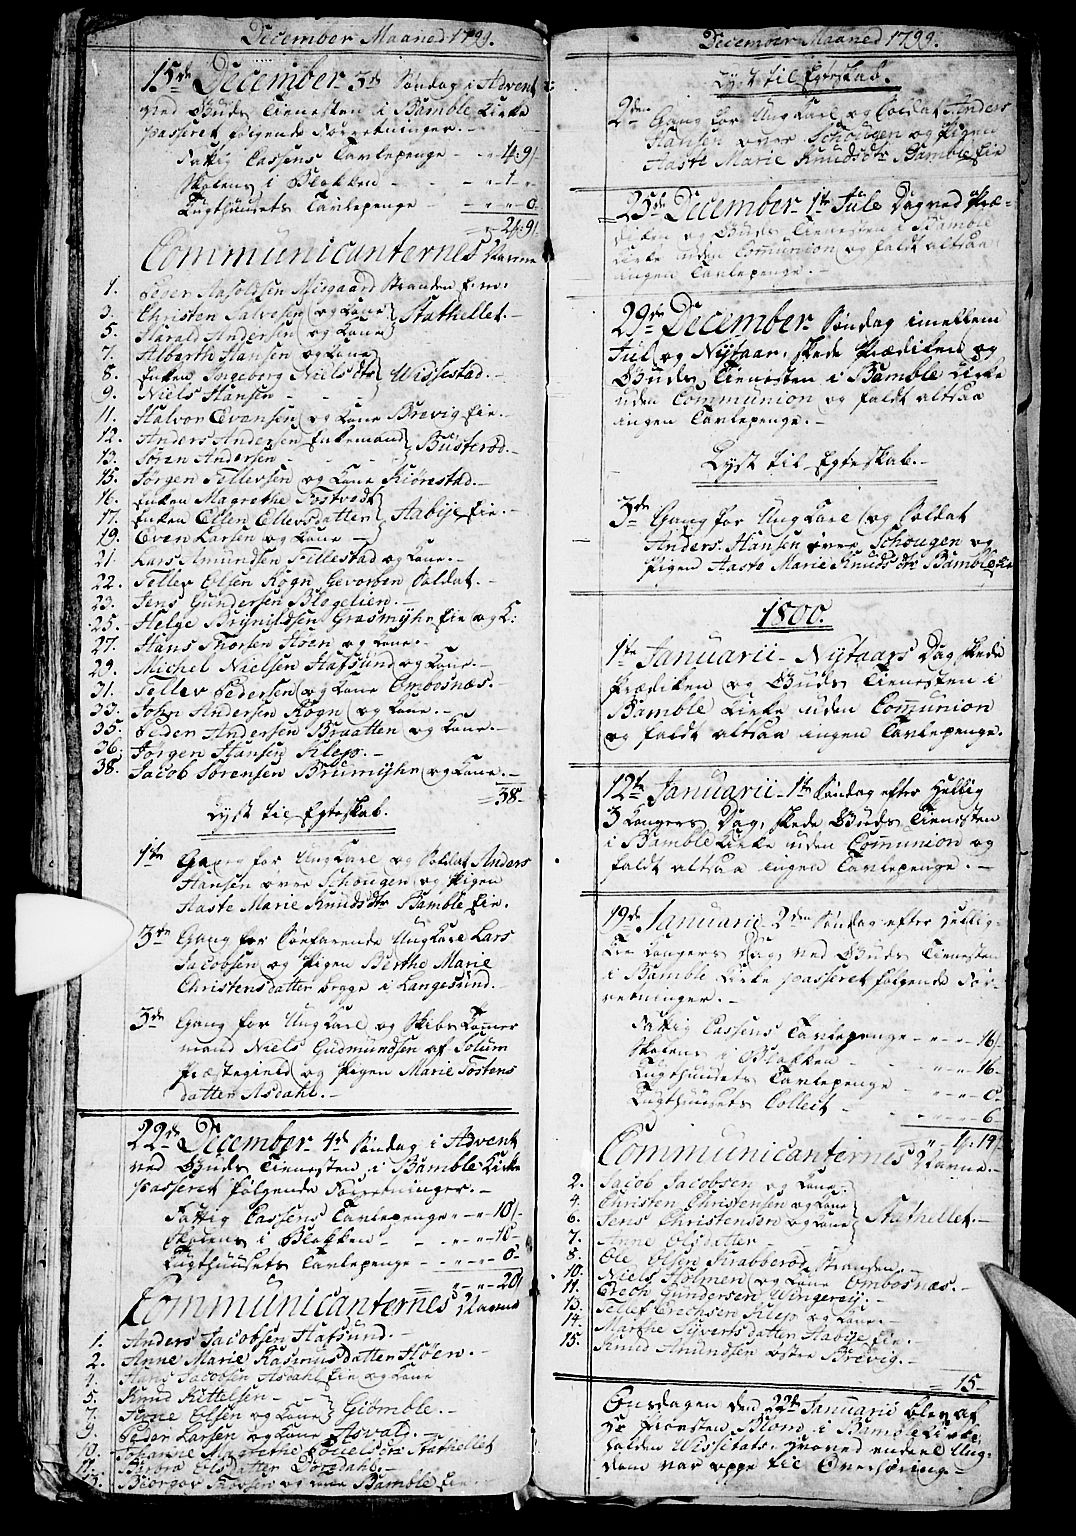 December Maaned 1799.
15de December 3de Søndag i Advent
ved Guds Tienesten i Bamble Kirke
passeret følgende Forretninger. -
Fattig Cassens Tavlepenge - - 4: 9/.
Skolens i Blokken - - 1 -
Tugthuusets Tavlepenge - - 0
Communicanternes Navne
1. Peder Aasoldsen Aisgaard Stranden Eie.
3. Christen Salvesen og Kone
5. Harald Andersen og Kone } Stathellet. -
7. Alberth Hansen og Kone
8. Enken Ingeborg Nielsdtr } Wissestad. -
9. Niels Hansen - - -
11. Halvor Evansen og Kone Brevig Eie. -
12. Anders Andersen Enkemand
13. Søren Andersen - - - } Busterød. -
15. Jørgen Tellefsen og Kone Kiønstad. -
16. Enken Magrethe Tostvedt
17. Enken Ellen Ellevsdatter } Aabye Eie. -
19. Even Larsen og Kone -
21. Lars Amundsen Fillestad og Kone. -
22. Tellev Olsen Rogn Gevorben Soldat. -
23. Jens Gundersen Blegelien. -
25. Helge Brynildsen Grasmyhr Eie og K:
27. Hans Thorsen Aasen og Kone. -
29. Michel Nielsen Hafsund og Kone. -
31. Tellev Pedersen og Kone Ombosnæs. -
33. John Andersen Rogn og Kone. -
35. Peder Andersen Braatten og Kone. -
36. Jørgen Hansen Klep. -
38. Jacob Sørensen Brumyhr og Kone. -
= 38 -
Lyst til Egteskab.
1ste Gang for Ung Karl og Soldat Anders
Hansen øvre Schougen og Pigen
Aaste Marie Knudsdtr Bamble Eie.
3die Gang for Søefarende Ung Karl Lars
Jacobsen og Pigen Berthe Marie
Christensdatter begge i Langesund. -
3de Gang for Ung Karl og Skibs Tømmer
mand Niels Gudmundsen af Solum
Præstegield og Pigen Marie Tostens
datter Asdahl. -
22de December 4de Søndag i Advent
ved Guds Tienesten i Bamble Kirke
passeret følgende Forretninger. -
Fattig Cassens Tavlepenge - - 10/. -
Skolens i Blokken - - - 10 -
Tugthuusets Tavlepenge - - 0 -
- - 20/
Communicanternes Navne
1. Anders Jacobsen Hafsund. -
2. Anne Marie Rasmusdatter Høen. -
4. Hans Jacobsen Asdahl Eie og Kone
5. Knud Kittelsen - -
7. Arne Olsen og Kone } Giømble. -
9. Peder Larsen og Kone Asvald. -
10. Johanne Magrethe Povelsdtr Stathellet
11. Barbra Olsdatter Dørdahl. -
Biørgor Thorsen og Kone Bamble Eie.
December Maaned 1799.
Lyst til Egteskab.
2den Gang for Ung Karl og Soldat Anders
Hansen øvre Schougen og Pigen
Aaste Marie Knudsdtr Bamble Eie
25de December 1ste Jule Dag ved Præ-
diken og Guds Tienesten i Bamble
Kirke uden Communion og faldt altsaa
ingen Tavlepenge. -
29de December Søndag imellem
Juul og Nytaar, skede Prædiken og
Guds Tienesten i Bamble Kirke
uden Communion og faldt altsaa
ingen Tavlepenge. -
Lyst til Egteskab. -
3de Gang for Ung Karl og Soldat
Anders Hansen øvre Schougen og
Pigen Aaste Marie Knudsdtr Bamble Eie
1800.
1ste Januarii - Nytaars Dag skede
Prædiken og Guds Tienesten i
Bamble Kirke uden Comunion
og faldt altsaa ingen Tavlepenge.
12te Januarii - 1ste Søndag efter Hellig
3 Kongers Dag, skede Guds Tienesten
i Bamble Kirke uden Communion og
faldt altsaa ingen Tavlepenge. -
19de Januarii - 2den Søndag efter Hellig-
Tre Kongers Dag ved Guds Tienesten
i Bamble Kirke passeret følgende For-
retninger. -
Fattig Cassens Tavlepenge - - - 16/
Skolens i Blokken - - - 16 -
Tugthuusets Tavlepenge - - - 0 -
Tugthuusets Collect - - - 6 -
Communicanternes Navne. -
2. Jacob Jacobsen og Kone.
4. Christen Christensen og Kone
6. Jens Christensen og Kone } Stathellet. -
7. Anne Olsdatter -
8. Ole Olsen Krabberød Stranden. -
10. Niels Holmen og Kone Ombosnæs. -
11. Erech Gundersen Wingereij. -
13. Tellef Erechsen Klep og Kone. -
14. Marthe Syvertsdatter Aabye Eie. -
15. Knud Amundsen Østre Brevig. -
15. -
Onsdagen den 22de Januarii blev af
Hr Provsten Blom i Bamble Kirke
holden Wissitats. Hvorved endeel Ung-
dom var oppe til Overhøring. -